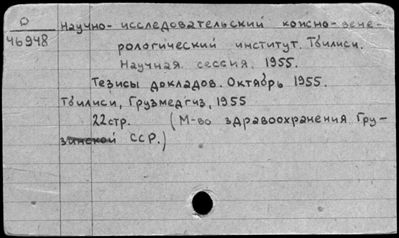 О
46948
Научно-исследовательский кожно-вене-
рологический институт. Тбилиси.
Научная сессия. 1955.
Тезисы докладов. Октябрь 1955.
Тбилиси, Грузмедгиз, 1955
22стр. (М-во здравоохранения Гру-
зинской ССР.)